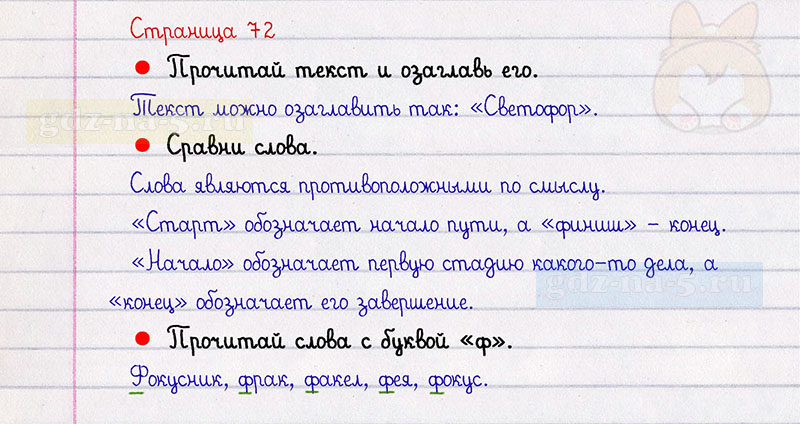 Страница 72
Прочитай текст и озаглавь его.
Текст можно озаглавить так: «Светофор».
gdz-na-5.ru
Сравни слова.
Слова являются противоположными по смыслу.
«Старт» обозначает начало пути, а «финиш» – конец.
«Начало» обозначает первую стадию какого-то дела, а
gdz-na-5.ru
«конец» обозначает его завершение.
Прочитай слова с буквой «ф».
Фокусник, фрак, факел, фея, фокус.